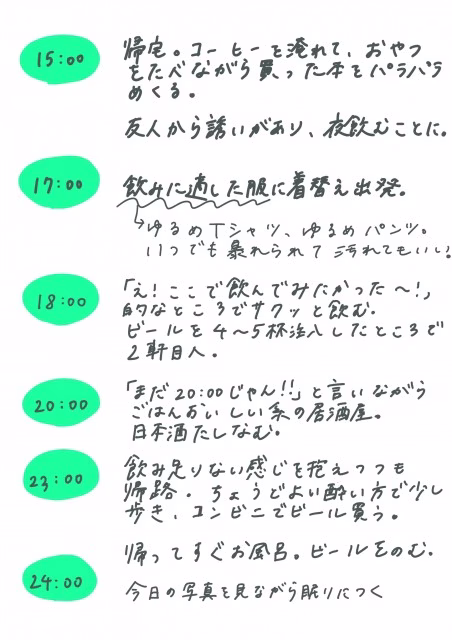 15:00
帰宅。コーヒーを淹れて、おやつ
をたべながら買った本をパラパラ
めくる。
友人から誘いがあり、夜飲むことに。
17:00
飲みに適した服に着替え出発。
ゆるめTシャツ、ゆるめパンツ。
いつでも暴れられて汚れてもいい。
18:00
「え!ここで飲んでみたかった〜!」
的なところでサクッと飲む。
ビールを4〜5杯注入したところで
2軒目へ。
20:00
「まだ20:00じゃん!!」と言いながら
ごはんおいしい系の居酒屋。
日本酒たしなむ。
23:00
飲み足りない感じを抱えつつも
帰路。ちょうどよい酔い方で少し
歩き、コンビニでビール買う。
帰ってすぐお風呂。ビールをのむ。
24:00
今日の写真を見ながら眠りにつく